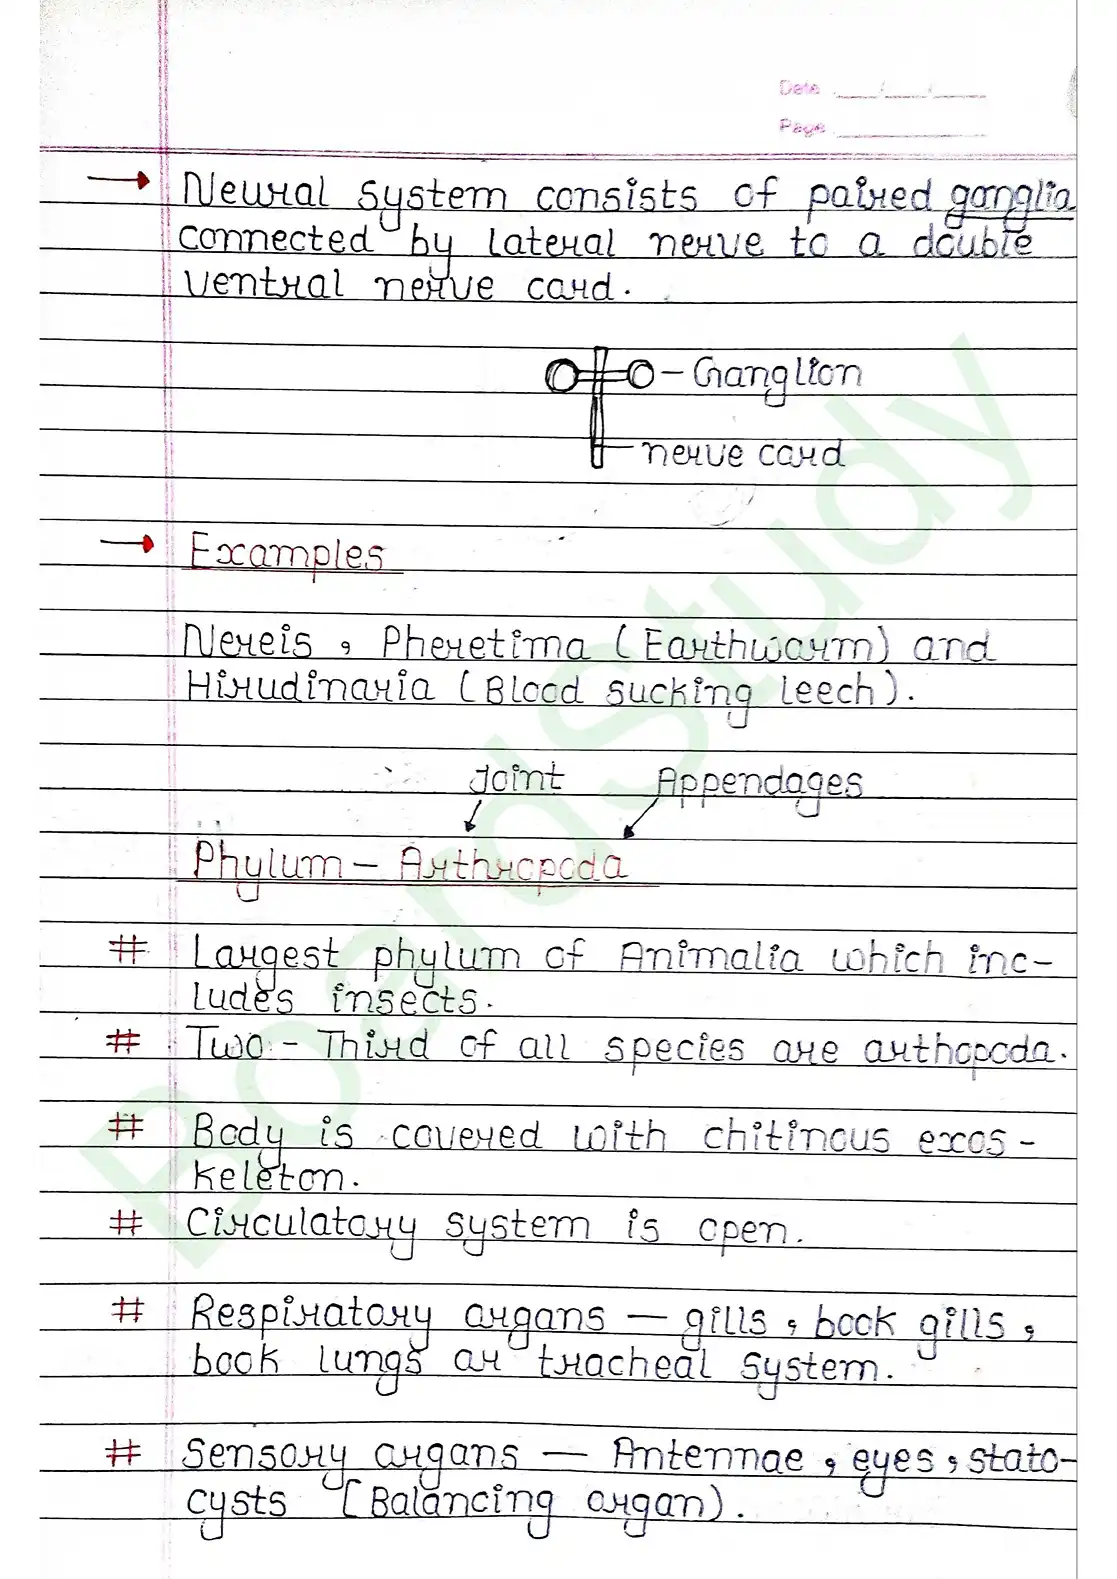 Date ___/___/___
Page ___
→ Neural system consists of paired ganglia
connected by lateral nerve to a double
ventral nerve cord.
- Ganglion
nerve cord
→ Examples
Nereis, Pheretima (Earthworm) and
Hirudinaria (Blood sucking leech).
Joint Appendages
Phylum - Arthropoda
# Largest phylum of Animalia which inc-
ludes insects.
# Two - Third of all species are arthopoda.
# Body is covered with chitinous exos-
keleton.
# Circulatory system is open.
# Respiratory organs — gills, book gills,
book lungs or tracheal system.
# Sensory organs — Antennae, eyes, stato-
cysts (Balancing organ).
BoardStudy